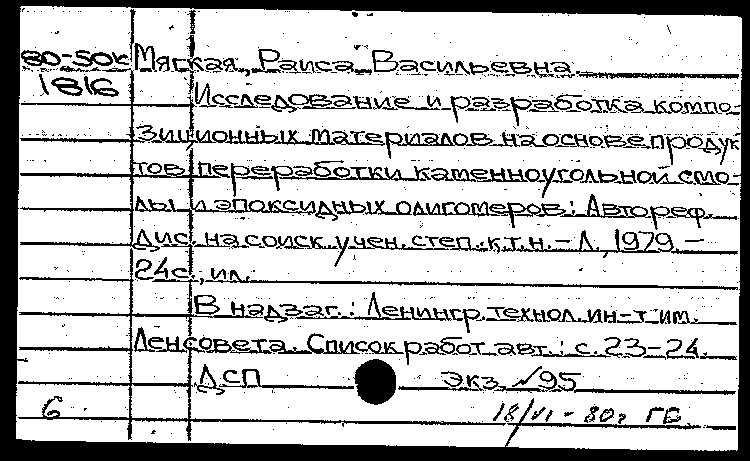 80-50к Мягкая, Раиса Васильевна
1816 Исследование и разработка компо-
зиционных материалов на основе продук
тов переработки каменноугольной смо-
лы и эпоксидных олигомеров: Автореф.
дис. на соиск. учен. степ. к.т.н. – Л., 1979. –
24с., ил.
В надзаг.: Ленингр. технол. ин-т им.
Ленсовета. Список работ авт.: с. 23-24.
ДСП экз. №95
6 18/VI - 80г ГБ